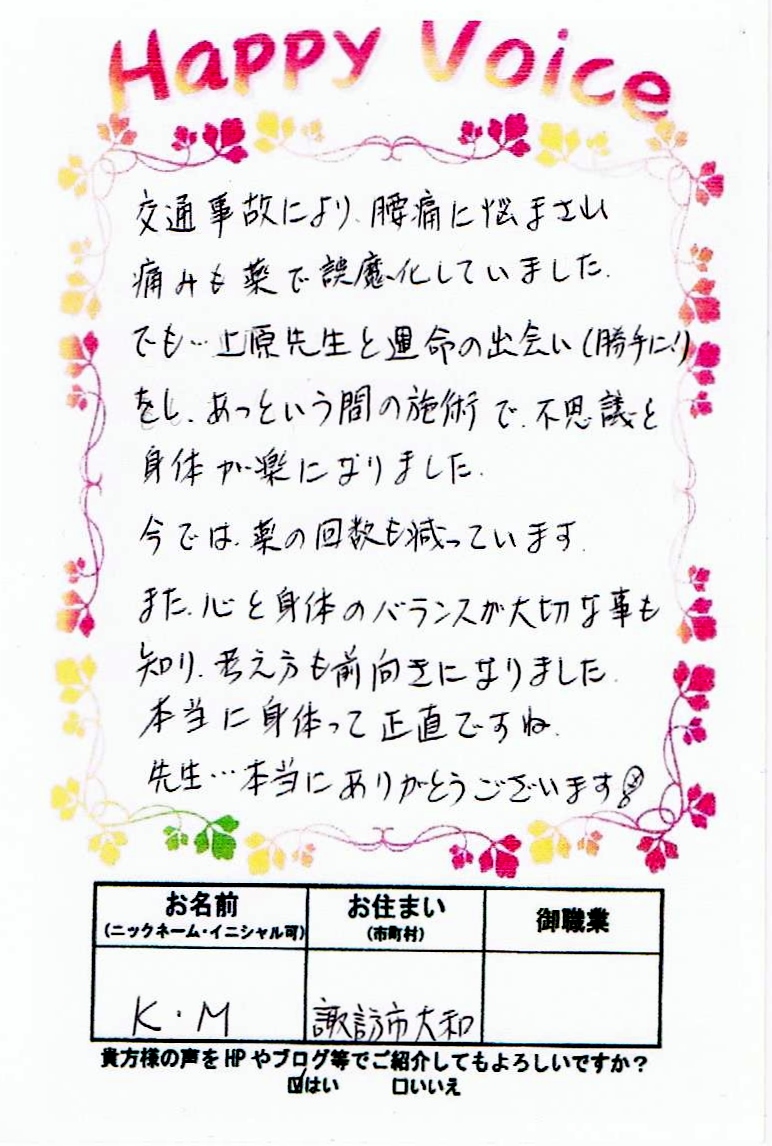 Happy Voice
交通事故により、腰痛に悩まされ
痛みも薬で誤魔化していました。
でも…上原先生と運命の出会い(勝手に!)
をし、あっという間の施術で、不思議と
身体が楽になりました。
今では、薬の回数も減っています。
また、心と身体のバランスが大切な事も
知り、考え方も前向きになりました。
本当に身体って正直ですね。
先生…本当にありがとうございます!
お名前
(ニックネーム・イニシャル可)
お住まい
(市町村)
御職業
K・M
諏訪市大和
貴方様の声をHPやブログ等でご紹介してもよろしいですか?
☑はい □いいえ